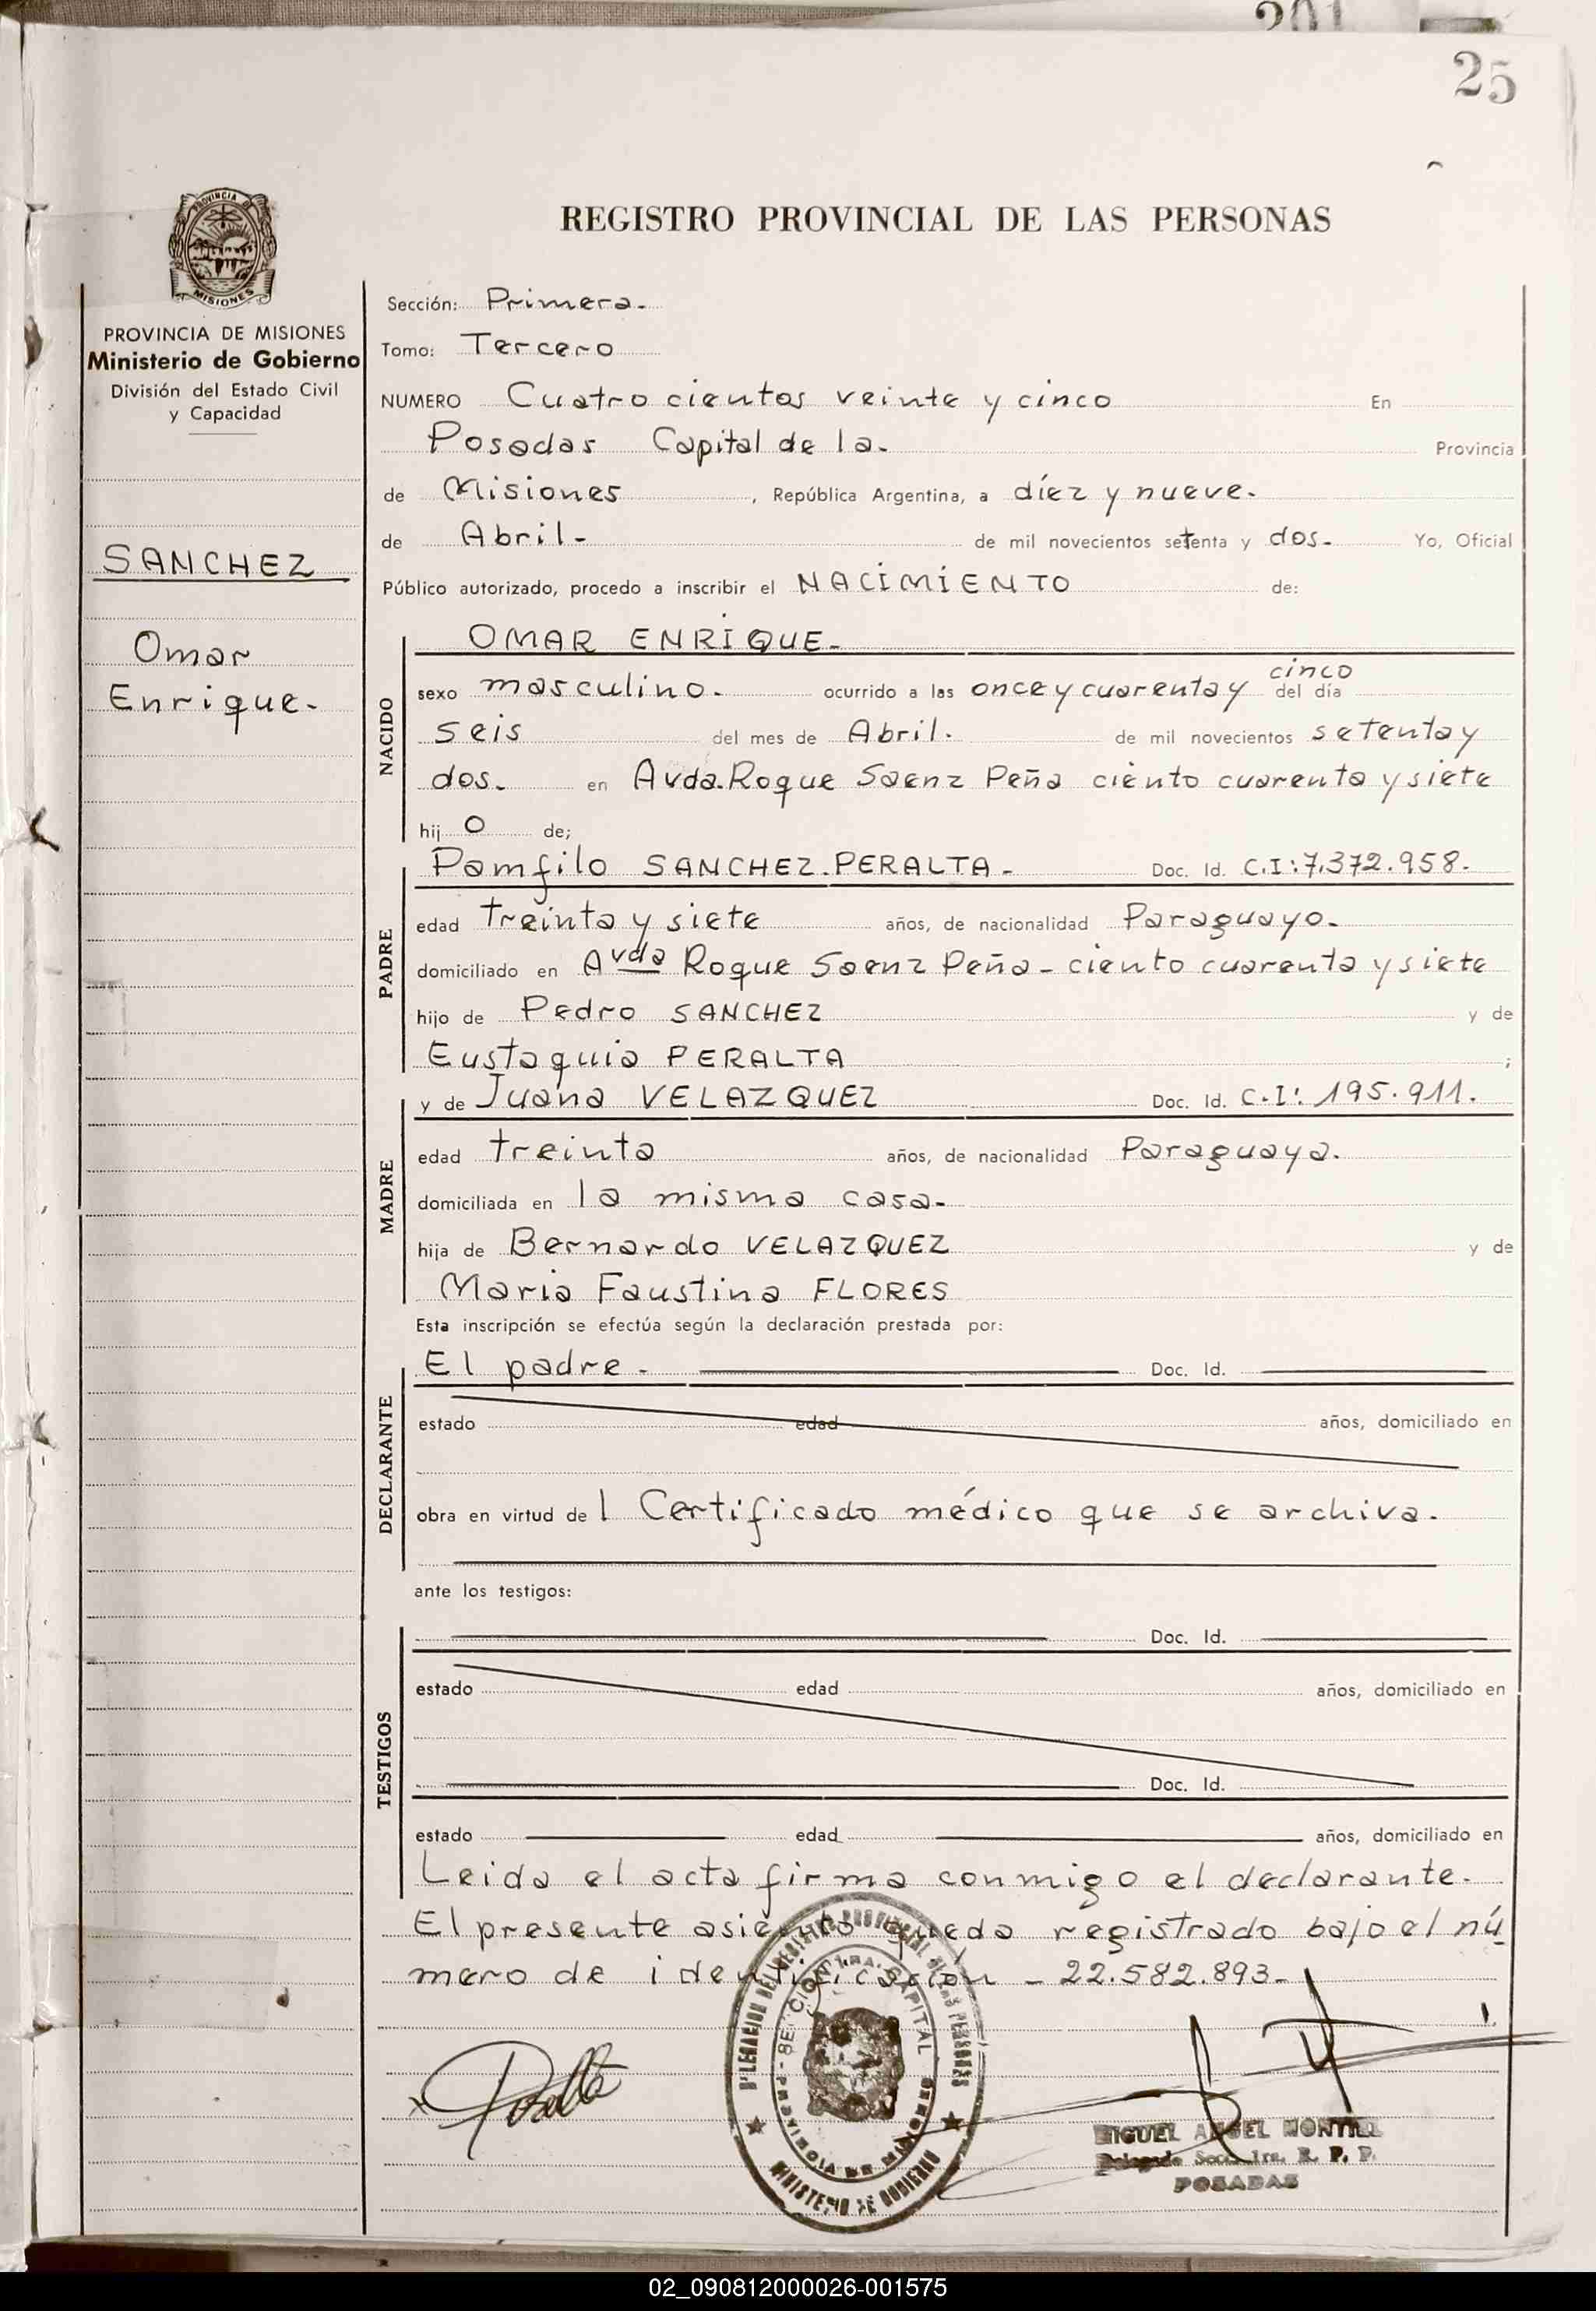 201
25
PROVINCIA DE
MISIONES
PROVINCIA DE MISIONES
Ministerio de Gobierno
División del Estado Civil
y Capacidad
SANCHEZ
Omar
Enrique.
REGISTRO PROVINCIAL DE LAS PERSONAS
Sección: Primera.
Tomo: Tercero
NUMERO Cuatro cientos veinte y cinco En
Posadas Capital de la. Provincia
de Misiones, República Argentina, a díez y nueve.
de Abril- de mil novecientos setenta y dos. Yo, Oficial
Público autorizado, procedo a inscribir el NACIMIENTO de:
NACIDO
OMAR ENRIQUE.
cinco
sexo masculino. ocurrido a las once y cuarenta y del día
seis del mes de Abril. de mil novecientos setenta y
dos. en Avda. Roque Saenz Peña ciento cuarenta y siete
hijo de;
PADRE
Pamfilo SANCHEZ.PERALTA. Doc. Id. C.I:7.372.958.
edad treinta y siete años, de nacionalidad Paraguayo.
domiciliado en Avda Roque Saenz Peña - ciento cuarenta y siete
hijo de Pedro SANCHEZ y de
Eustaquia PERALTA ;
MADRE
y de Juana VELAZQUEZ Doc. Id. C.I: 195.911.
edad treinta años, de nacionalidad Paraguaya.
domiciliada en la misma casa.
hija de Bernardo VELAZQUEZ y de
Maria Faustina FLORES
Esta inscripción se efectúa según la declaración prestada por:
DECLARANTE
El padre. Doc. Id.
estado edad años, domiciliado en
obra en virtud del Certificado médico que se archiva.
ante los testigos:
TESTIGOS
Doc. Id.
estado edad años, domiciliado en
Doc. Id.
estado edad años, domiciliado en
Leida el acta firma conmigo el declarante.
El presente asiento queda registrado bajo el nú
mero de identificación - 22.582.893-
DELEGACION DEL REGISTRO PROVINCIAL DE LAS PERSONAS
SECCION 1RA. CAPITAL
PROVINCIA DE MISIONES
MINISTERIO DE GOBIERNO
MIGUEL ANGEL MONTIEL
Delegado Secc. 1ra. R. P. P.
POSADAS
02_090812000026-001575